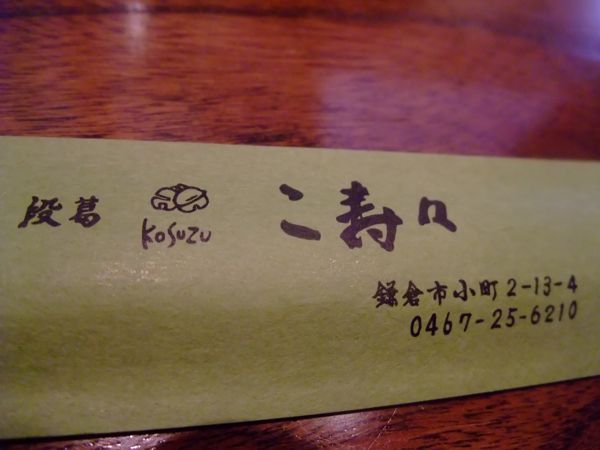 段葛 KOSUZU こ寿々
鎌倉市小町2-13-4
0467-25-6210